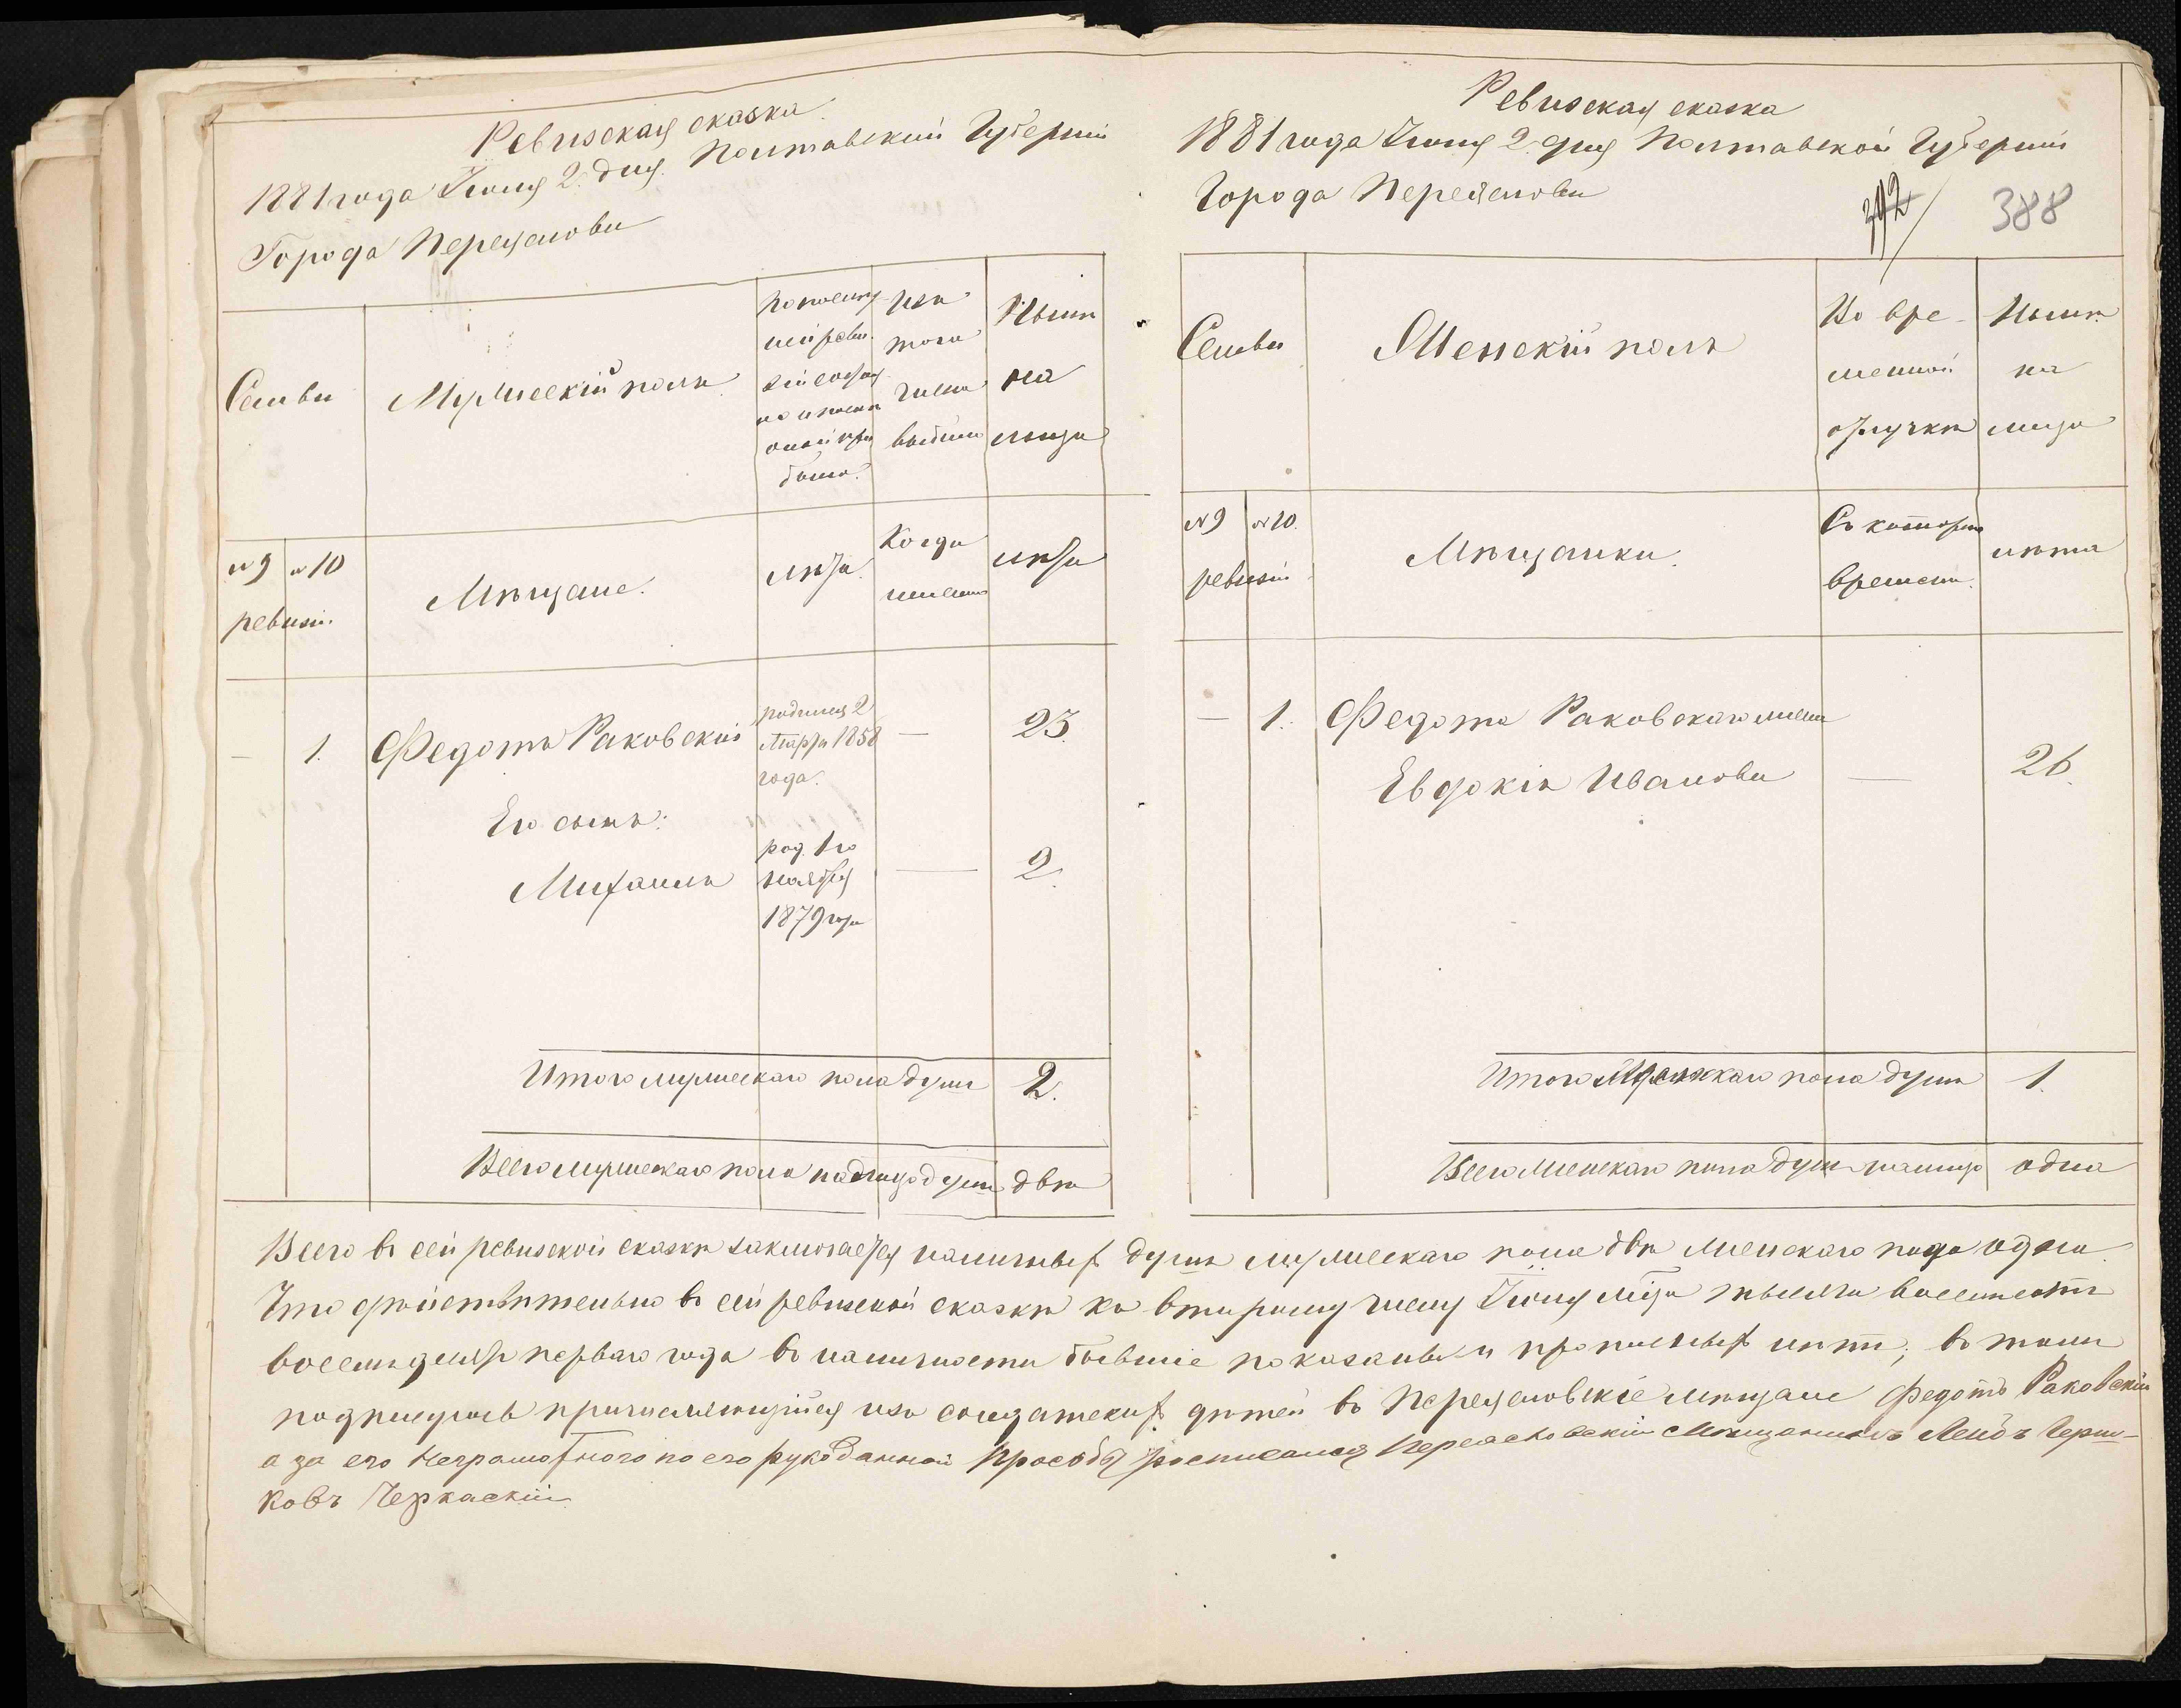 Ревизская сказка
1881 года Іюня 2. дня. Полтавской Губерніи
Города Переяслова
Семьи
Мужескій полъ
По послѣд
ней реви
зіи состоя
ло и послѣ
оной при
было.
Изъ
того
числа
выбыло
Нынѣ
на
лицо
№ 9 № 10
ревизіи.
Мѣщане.
Лѣта.
Когда
именно
Лѣта
— 1. Федотъ Раковскій — 23.
родился 2
Марта 1858
года.
Его сынъ:
Михаилъ — 2.
род. 1го
Ноября
1879 года
Итого мужескаго пола душъ 2.
Всего мужескаго пола на лицо душъ двѣ
Ревизская сказка
1881 года Іюня 2. дня Полтавской Губерніи
Города Переяслова
392
388
Семьи
Женскій полъ
Во вре-
менной
отлучкѣ
Нынѣ
на
лицо
№ 9 № 10.
ревизіи
Мѣщанки.
Съ котораго
времени.
лѣта
— 1. Федота Раковскаго жена
Евдокія Иванова — 26.
Итого женскаго пола душъ 1.
Всего женскаго пола душъ на лицо одна
Всего въ сей ревизской сказкѣ заключается наличныхъ душъ мужескаго пола двѣ женскаго пола одна
Что дѣйствительно въ сей ревизской сказкѣ ко второму числу Іюня м-ца тысяча восемьсотъ
восемьдесятъ перваго года въ наличности бывшіе показаны и прописныхъ нѣтъ; въ томъ
подписуюсь причисляющійся изъ солдатскихъ дѣтей въ Переясловскіе мѣщане Федотъ Раковскій
а за его Неграмотного по его рукоданной просьбы росписался Переясловскій Мѣщанинъ Лейбъ Герш-
ковъ Черкаскій